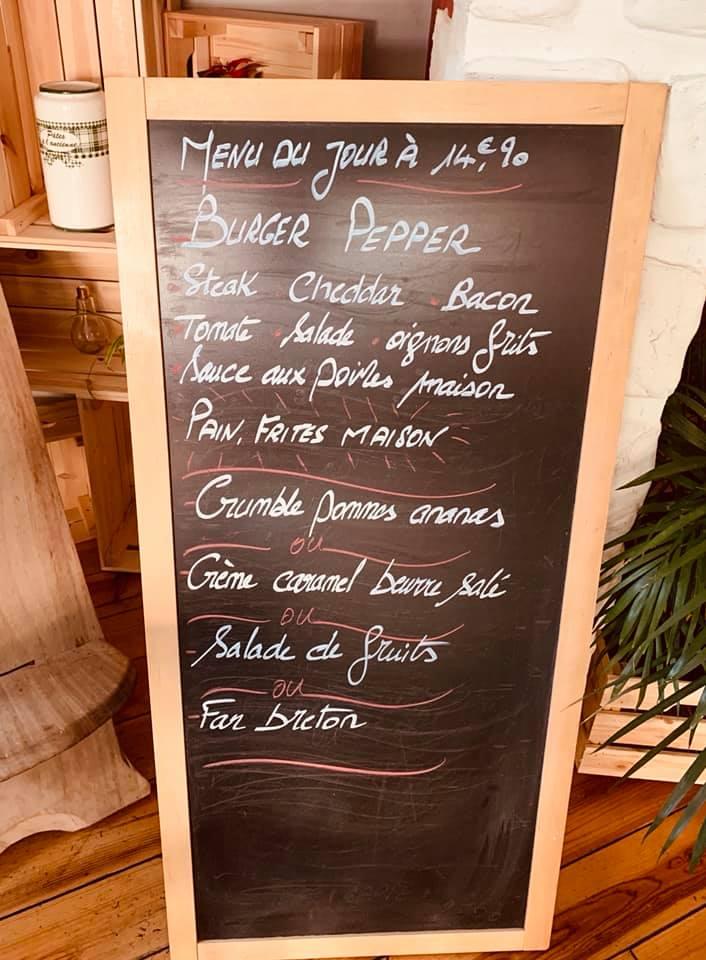 Pâtes
à l'ancienne
MENU DU JOUR À 14,€90
BURGER PEPPER
Steak Cheddar Bacon
Tomate Salade oignons frits
Sauce aux poivres maison
PAIN, FRITES MAISON
Crumble pommes ananas
OU
Crème caramel beurre salé
OU
Salade de fruits
OU
Far breton